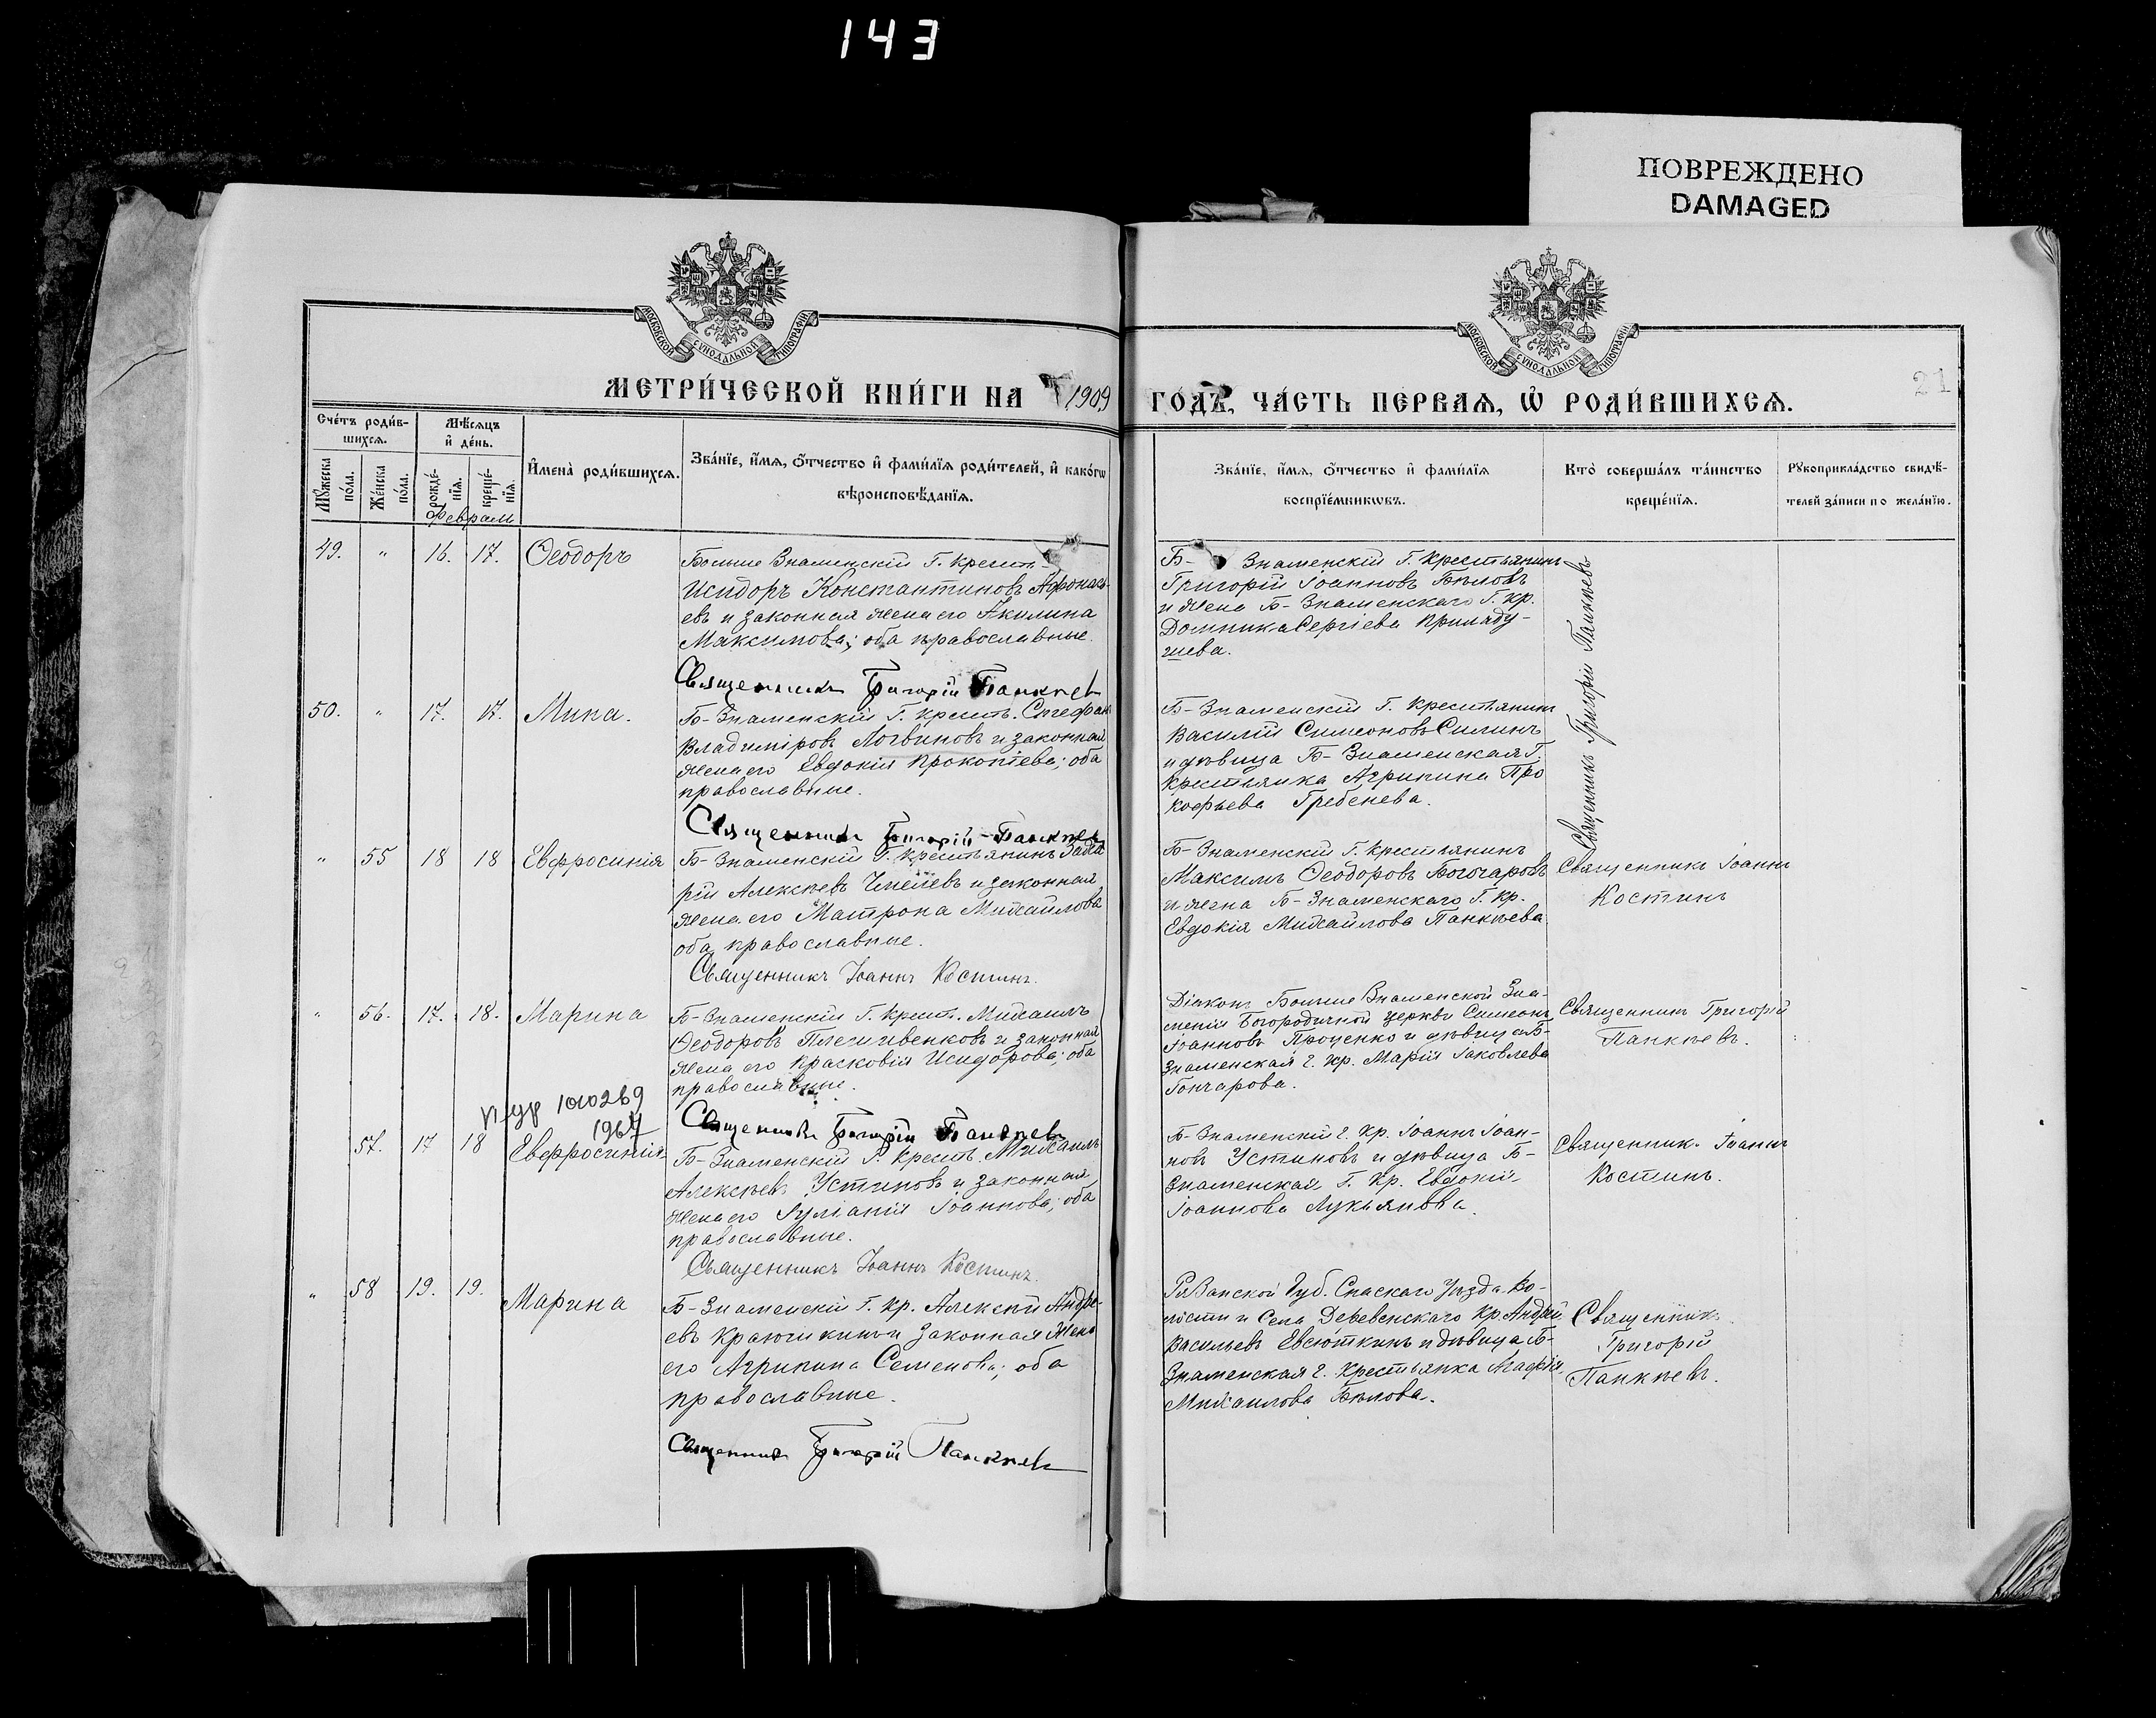 143
ПОВРЕЖДЕНО
DAMAGED
МОСКОВСКОЙ СѴНОДАЛЬНОЙ ТИПОГРАФІИ
МОСКОВСКОЙ СѴНОДАЛЬНОЙ ТИПОГРАФІИ
МЕТРИ́ЧЕСКОЙ КНИ́ГИ НА 1909
ГО́ДЪ, ЧА́СТЬ ПЕРВАѦ, Ѡ҆ РОДИ́ВШИХСѦ.
21
Сче́тъ роди́в-
шихсѧ.
Мѣ́сѧцъ
и҆ де́нь.
И҆мена̀ роди́вшихсѧ.
Зва́нїе, и҆́мѧ, ѻ҆́тчество и҆ фами́лїѧ роди́телей, и҆ како́гѡ
вѣроисповѣ́данїѧ.
Мꙋ́жеска
по́ла.
Же́нска
по́ла.
рожде́-
нїѧ.
креще́-
нїѧ.
Зва́нїе, и҆́мѧ, ѻ҆́тчество и҆ фами́лїѧ
воспрїе́мникѡвъ.
Кто̀ соверша́лъ та́инство
креще́нїѧ.
Рꙋкоприкла́дство свидѣ́-
телей за́писи по жела́нїю.
Февраль
49. " 16. 17. Ѳеодоръ
Больше Знаменскій Г. Крест-
Исидоръ Константиновъ Афонась-
евъ и законная жена его Акилина
Максимова; оба православные.
Священникъ Григорій Панкѣев
Б- Знаменскій Г. Крестьянинъ
Григорій Іоанновъ Бѣловъ
и жена Б-Знаменскаго Г. кр.
Домника Сергіева Приляду-
шева.
Священникъ Григорій Панкѣевъ
50. " 17. 17. Мина.
Б-Знаменскій Г. крест. Стефан
Владиміровъ Логвиновъ и законная
жена его Евдокія Прокопіева; оба
православные.
Священникъ Григорій Панкѣев
Б-Знаменскій Г. Крестьянинъ
Василій Симеоновъ Силинъ
и дѣвица Б-Знаменская Г.
Крестьянка Агрипина Про
кофьева Гребенева.
" 55 18 18 Евфросинія
Б-Знаменскій Г. Крестьянинъ Заха
рій Алексѣевъ и законная
жена его Матрона Михайлова
оба православные.
Священникъ Іоаннъ Костинъ.
Б-Знаменскій Г. Крестьянинъ
Максимъ Ѳеодоровъ
и жена Б-Знаменскаго Г. Кр.
Евдокія Михайлова Панкѣева
Священникъ Іоаннъ
Костинъ
" 56. 17. 18. Марина
Б-Знаменскій Г. Крест. Михаилъ
Ѳеодоровъ Плешивенковъ и законная
жена его Красковія Исидорова; оба
православные.
Священникъ Григорій Панкѣев
Діаконъ Больше Знаменской Зна-
менія Богородичной церкви Симеонъ
Іоанновъ Проценко и дѣвица Б-
Знаменская г. кр. Марія Іаковлева
Гончарова.
Священникъ Григорій
Панкѣевъ.
1010269
1967
57. 17 18 Евфросинія
Б-Знаменскій Г. Крест. Михаилъ
Алексѣевъ Устиновъ и законная
жена его Іуліанія Іоаннова; оба
православные.
Священникъ Іоаннъ Костинъ.
Б-Знаменскій г. Кр. Іоаннъ Іоан-
новъ Устиновъ и дѣвица Б-
Знаменская Г. Кр. Евдокія
Іоаннова Лукьянова.
Священник. Іоаннъ
Костинъ.
" 58 19. 19. Марина
Б-Знаменскій Г. Кр. Алексѣй Андре-
евъ Краюшкинъ и законная жена
его Агрипина Семенова; оба
православные.
Священникъ Григорій Панкѣев
Рязанской Губ. Спаскаго Уѣзда Во-
лости и Села Деревенскаго Кр. Андрей
Васильевъ Евсюткинъ и дѣвица Б-
Знаменская г. Крестьянка Агафія
Михаилова Бѣлова.
Священник.
Григорій
Панкѣевъ.